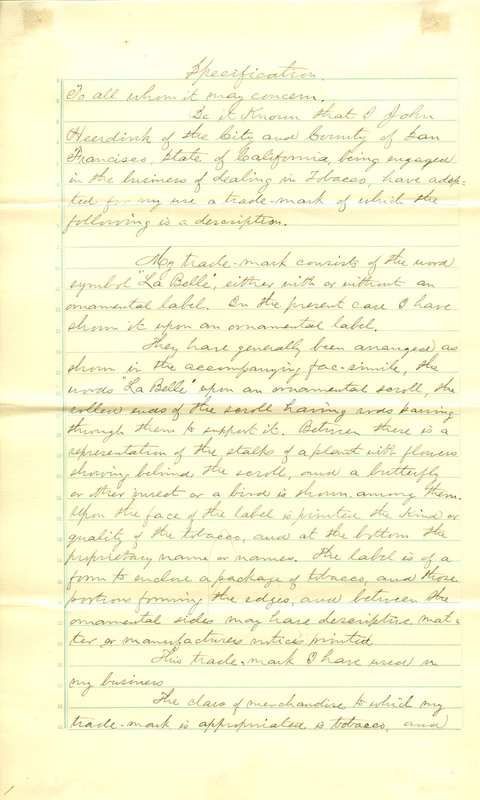 Specification.
To all whom it may concern,
Be it Known that I John
Heerdink of the City and County of San
Francisco, State of California, being engaged
in the business of dealing in Tobacco, have adop=
ted for my use a trade-mark of which the
following is a description.
My trade-mark consists of the word
symbol "La Belle", either with or without an
ornamental label. In the present case I have
shown it upon an ornamental label.
They have generally been arranged as
shown in the accompanying fac-simile, the
words "La Belle" upon an ornamental scroll, the
rolled ends of the scroll having rods passing
through them to support it. Between there is a
representation of the stalks of a plant with flowers
showing behind the scroll, and a butterfly
or other insect or a bird is shown among them.
Upon the face of the label is printed the Kind or
quality of the tobacco, and at the bottom the
proprietary name or names. The label is of a
form to enclose a package of tobacco, and those
portions forming the edges, and between the
ornamental sides may have descriptive mat-
ter or manufacturers notices printed
This trade-mark I have used in
my business
The class of merchandise to which my
trade-mark is appropriated is tobacco, and